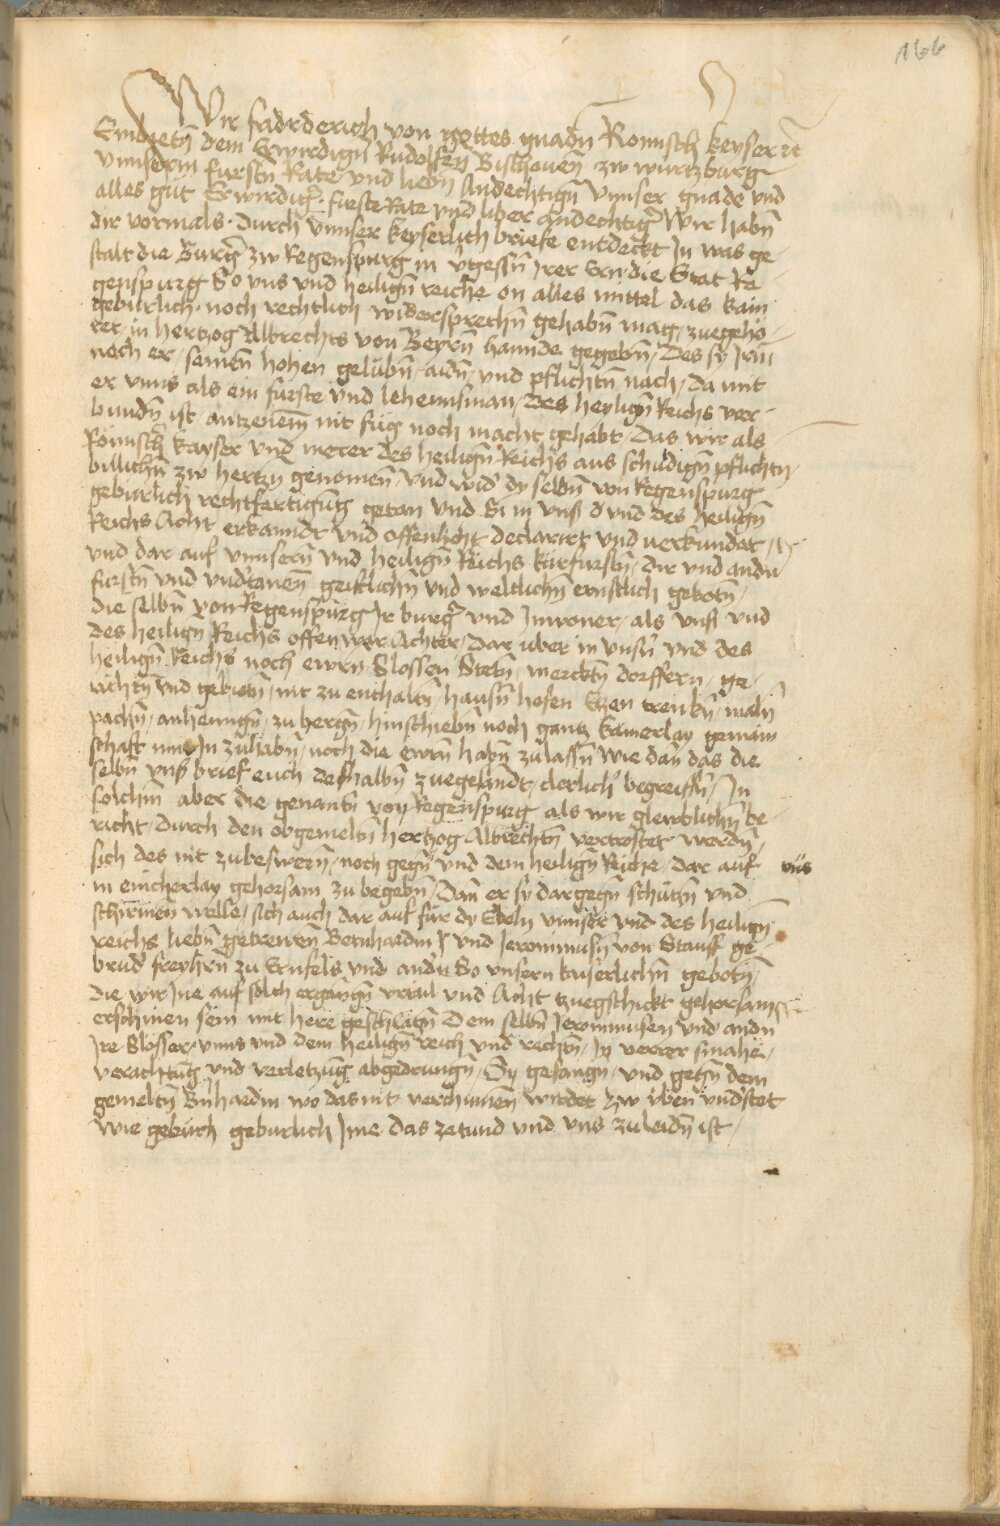 166
Wir fridrderich von gottes gnadn̄ Romisch keyser ꝛc
Embietn̄ dem Erwirdign̄ Rudolfen Bischouen zw wurtzburg
vnnserm fursten Rate vnd liebn̄ Andechtign̄ vnnser gnade vnd
alles gut Erwirdiger furste Rate vnd liber andechtiger Wir habn̄
dir vormals durch vnnser keyserlich briefe entdeckt Jn was ge
stalt die Burger zw Regenspurg in v̓gessn̄ Jrer Ern die Stat Re
genspurg So vns vnd heilign̄ reiche on alles mittel das kain
geburlich noch rechtlich widersprechn̄ gehabn̄ mag / zuegeho
ret / in hertzog Albrechts von Beyrn̄ hannde gegebn̄ / Des sy Jrn̄
noch er / seinen hohen gelubn̄ / aidn̄ / vnd pflichtn̄ nach / da mit
er vnns als ein furste vnd lehennsman / des heylign̄ Reichs ver
bundn̄ ist / antzenem̄ nit fug noch macht gehabt Das wir als
Romisch kayser vnd merer des heilign̄ Reichs aus schuldign̄ pflichtn̄
billichn̄ zw hertzn̄ genomen / vnd wid̓ dy selbn̄ von Regenspurg
geburlich rechtfertigung getan vnd Si in vnß vnd des heilign̄
Reichs Acht erkanndt vnd offenlicht declarirt vnd verkundet
vnd dar auf vnnsern̄ vnd heilign̄ Reichs kurfurstn̄ / dir vnd andn̄
furstn̄ vnd vnd̓tanen geistlichn̄ vnd weltlichn̄ ernstlich gebotn̄ /
die selbn̄ von Regenspurg Jr burg̓ vnd Jnwoner / als vnß vnd
des heilign̄ Reichs offenwar Achter / dar uber in vnsn̄ vnd des
heilign̄ Reichs noch ewrn̄ Slossen Stetn̄ / mercktn̄ dorffern / ge
richtn̄ vnd gebietn̄ / nit zu enthaltn̄ / hausn̄ hofen Etzen trenkn̄ / maln̄
pachn̄ / anhemign̄ / zu bergn̄ / hinschiebn̄ noch gantz kainerlay gemain
schaft mit Jn zuhabn̄ / noch die ewrn̄ habn̄ zulassn̄ wie dan̄ das die
selbn̄ vnß brief euch deßhalbn̄ zuegesandt / clerlich begreiffn̄ / Jn
solchm̄ aber die genantn̄ von Regenspurg als wir glewblichn̄ be
richt / durch den obgemeltn̄ hertzog Albrechtn̄ vertrostet werdn̄ /
sich des nit zubeswern̄ / noch gegn̄ vnd dem heilign̄ Riche / dar auf vns
in einicherlay gehorsam zu begebn̄ / Dan̄ er sy dargegn̄ schutzn̄ vnd
schirmen welle / sich auch dar auf fur dy Edeln vnnser vnd des heilign̄
reichs liebn̄ getrewen Bernhardin vnd Jeronimusn̄ von Stauff ge
brud̓ freyhrn̄ zu Ernfels vnd andr̄ So vnsern kaiserlichn̄ gebotn̄
die wir Jne auf solch ergangn̄ vrtail vnd Acht zuegschickt gehorsam
erschinen sein mit here geschlagn̄ Dem selbn̄ Jeronimusen vnd andn̄
Jre Slosser / vnns vnd dem heilign̄ reich vnd rechtn̄ / zu verrer smahe
verachtung vnd verletzung abgedrungn̄ / Sy gefangn̄ / vnd gegn̄ dem
gemeltn̄ Bn̄hardin wo das nit verchumen wurdet zw vben vnd̓stet
Wie geburh geburlich Jme das zetund vnd vns zuleidn̄ ist /